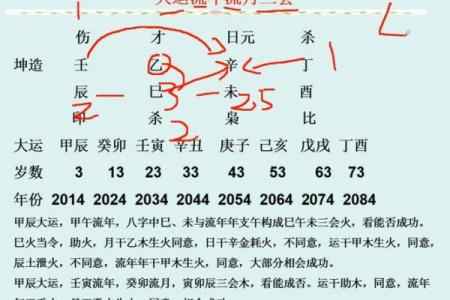 大运流年流月三会
伤 才 日元 杀
坤造 壬 乙 辛 丁
辰 巳 未 酉
印 杀 枭 比
大运 甲辰 癸卯 壬寅 辛丑 庚子 己亥 戊戌 丁酉
岁数 3 13 23 33 43 53 63 73
年份 2014 2024 2034 2044 2054 2064 2074 2084
甲辰大运，甲午流年，八字中巳、未与流年年支午构成巳午未三会火，看能否成功。
巳火当令，助火，月干乙木生火同意，日干辛金耗火，不同意，运干甲木生火，同意，
辰土泄火，不同意，流年年干甲木生火，同意，大部分相会成功。
甲辰大运，壬寅流年，癸卯流月，寅卯辰三会木，看能成否。运干助木，同意，流年